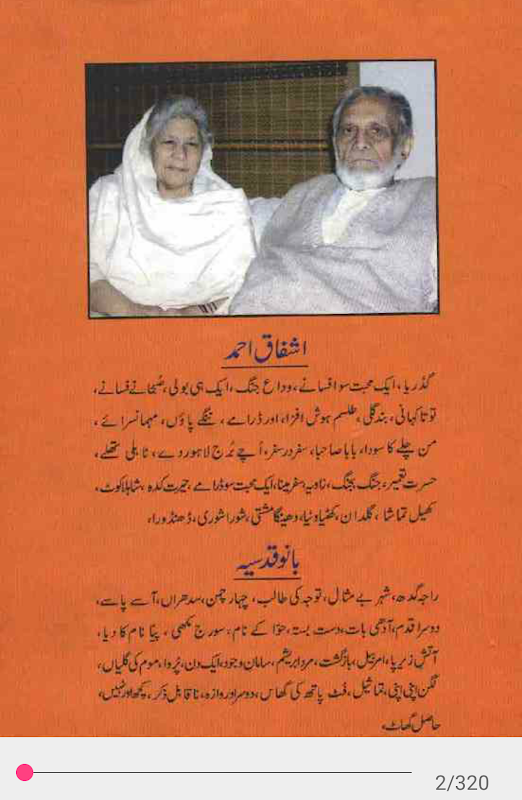 اشفاق احمد
گڈریا، ایک محبت سو افسانے، وداع جنگ، ایک ہی بولی، صبحانے فسانے،
توتا کہانی، بند گلی، طلسم ہوش افزا، اور ڈرامے، ننگے پاؤں، مہمانسرائے،
من چلے کا سودا، بابا صاحبا، سفر در سفر، اُچے بُرج لاہور دے، ٹاہلی تھلے،
حسرت تعمیر، جنگ بجنگ، زاویہ، سفرمینا، ایک محبت سو ڈرامے، حیرت کدہ، شاہلا کوٹ،
کھیل تماشا، گلدان، کھٹیا وٹیا، دھینگا مشتی، شورا شوری، ڈھنڈورا،
بانو قدسیہ
راجہ گدھ، شہر بے مثال، توجہ کی طالب، چہار چمن، سدھراں، آسے پاسے،
دوسرا قدم، آدھی بات، دست بستہ، حوّا کے نام، سورج مکھی، پیا نام کا دیا،
آتش زیر پا، امر بیل، بازگشت، مرد ابریشم، سامان وجود، ایک دن، پُروا، موم کی گلیاں،
لگن اپنی اپنی، تماثیل، فٹ پاتھ کی گھاس، دوسرا دروازہ، ناقابل ذکر، کچھ اور نہیں،
حاصل گھاٹ،
2/320